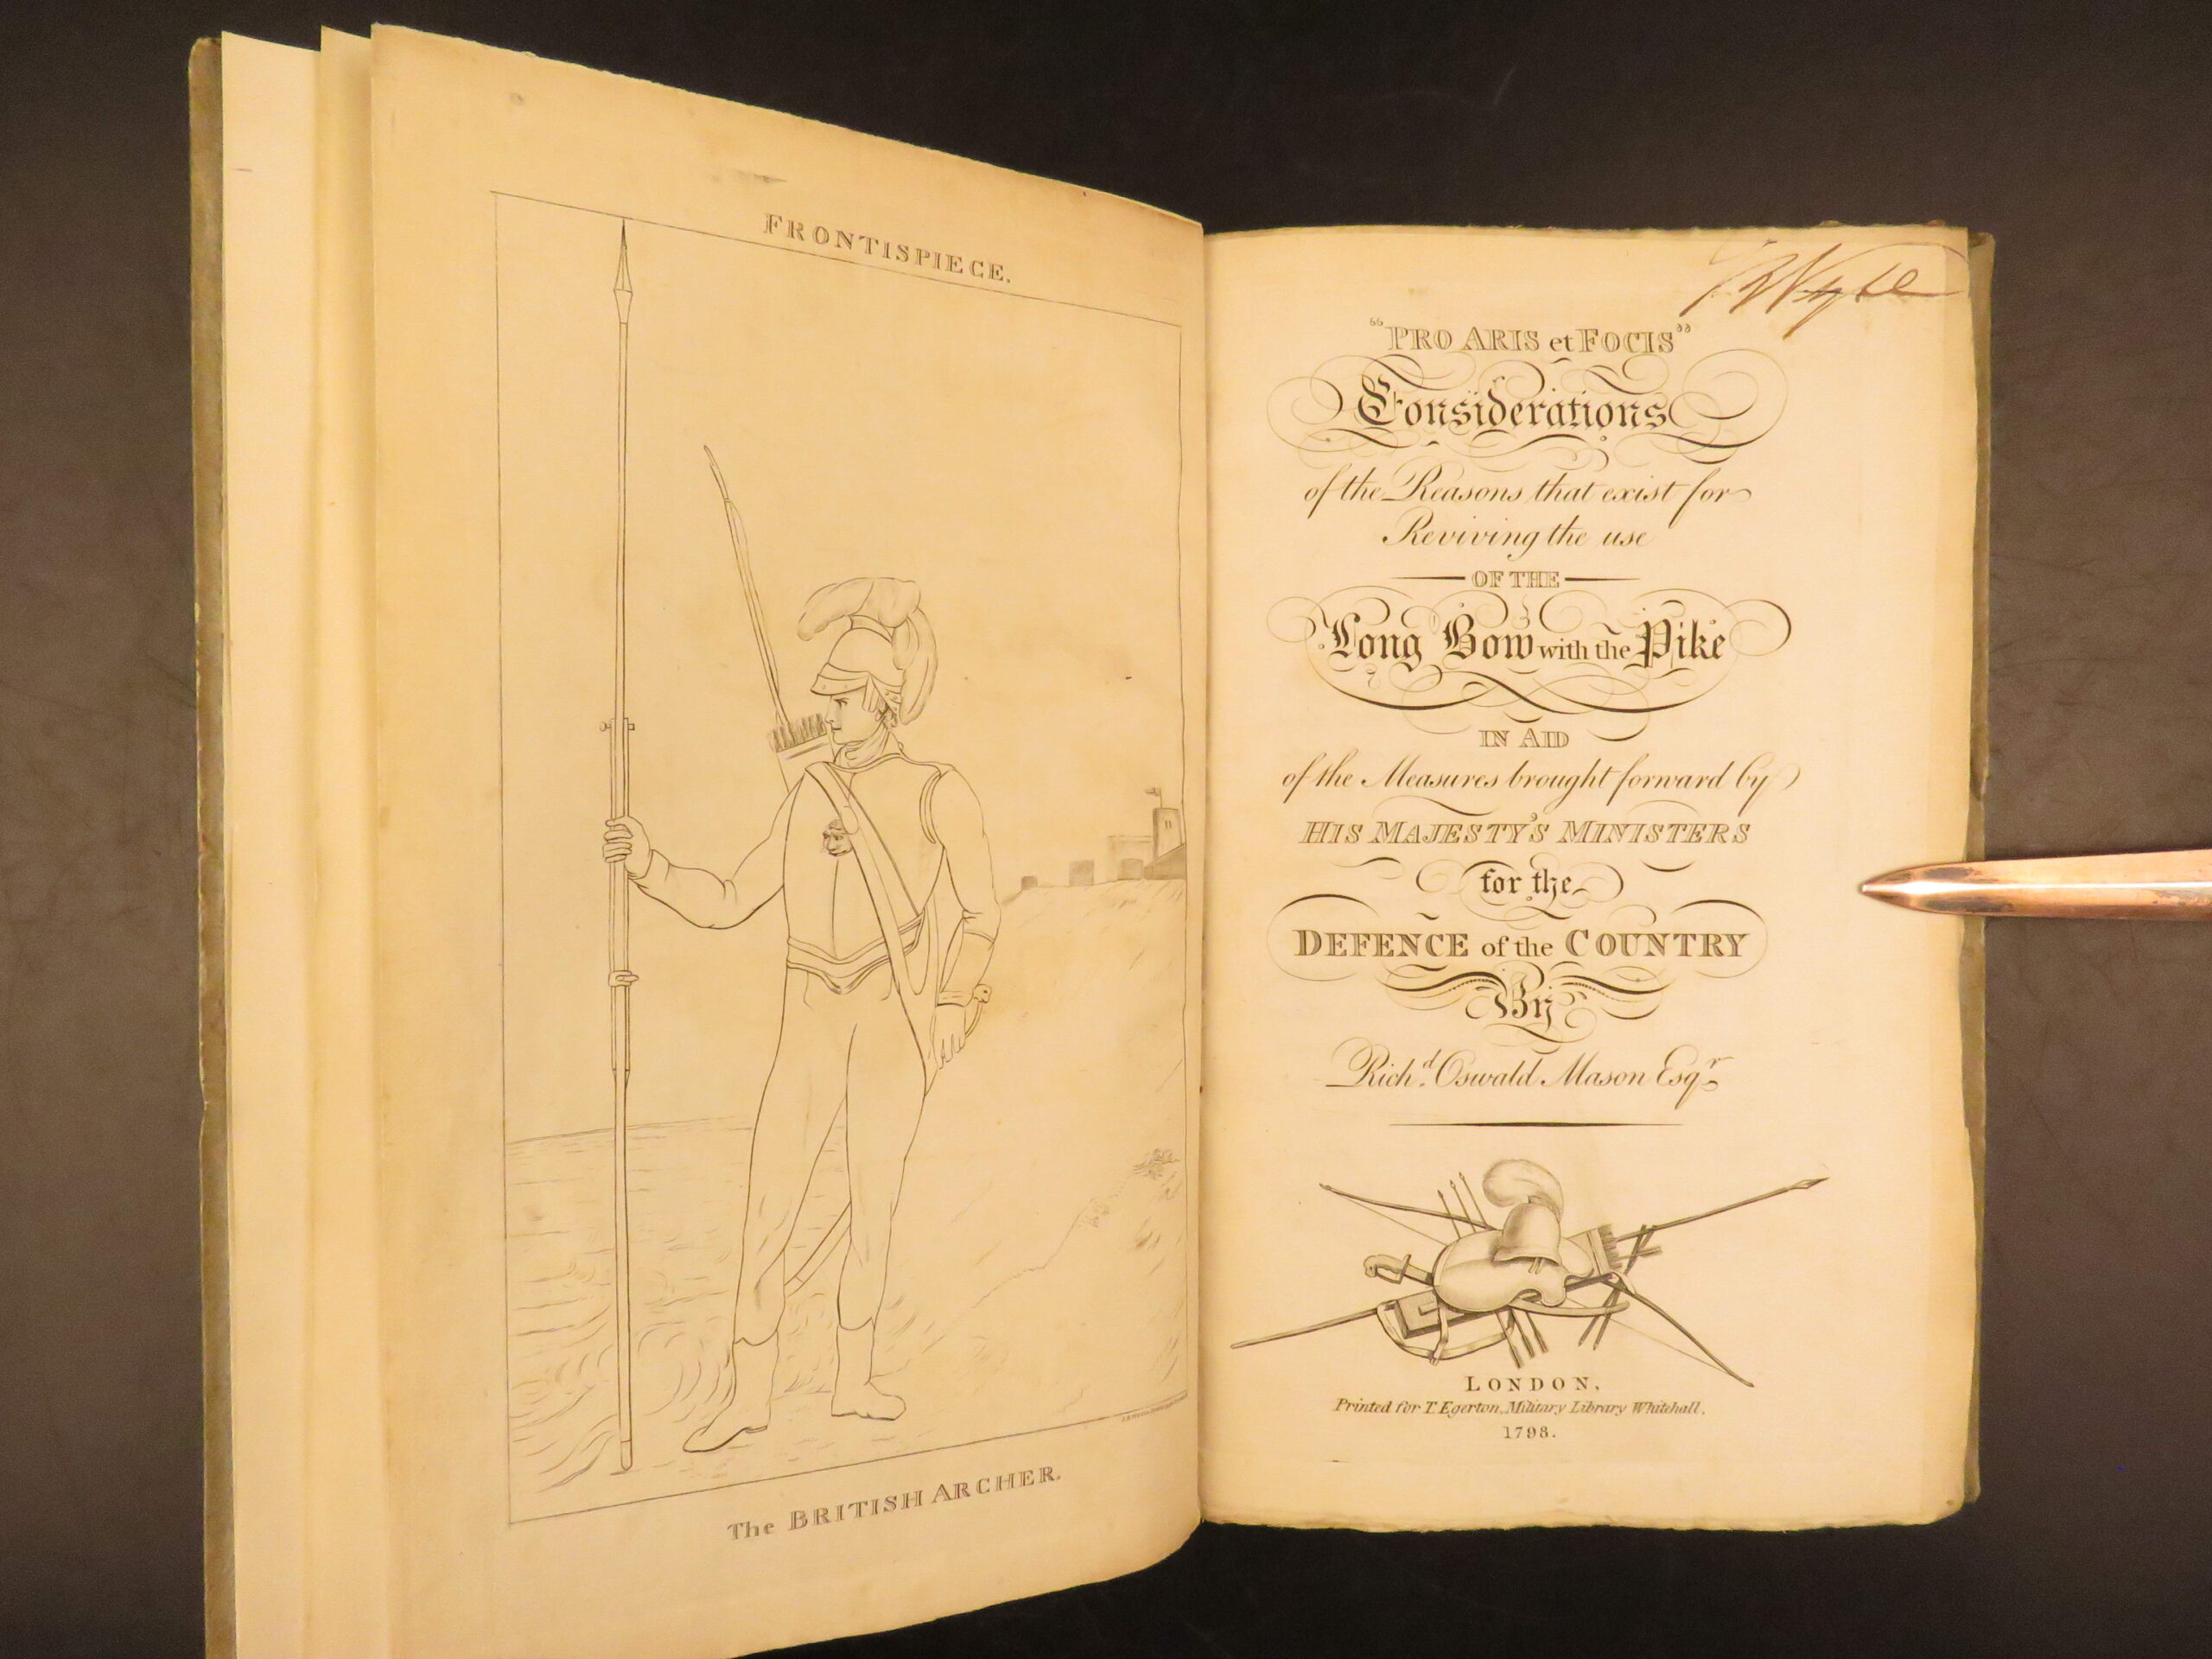 FRONTISPIECE.
The BRITISH ARCHER.
"PRO ARIS et FOCIS"
Considerations
of the Reasons that exist for
Reviving the use
OF THE
Long Bow with the Pike
IN AID
of the Measures brought forward by
HIS MAJESTY'S MINISTERS
for the
DEFENCE of the COUNTRY
By
Richd. Oswald Mason Esqr.
LONDON,
Printed for T. Egerton, Military Library Whitehall.
1798.